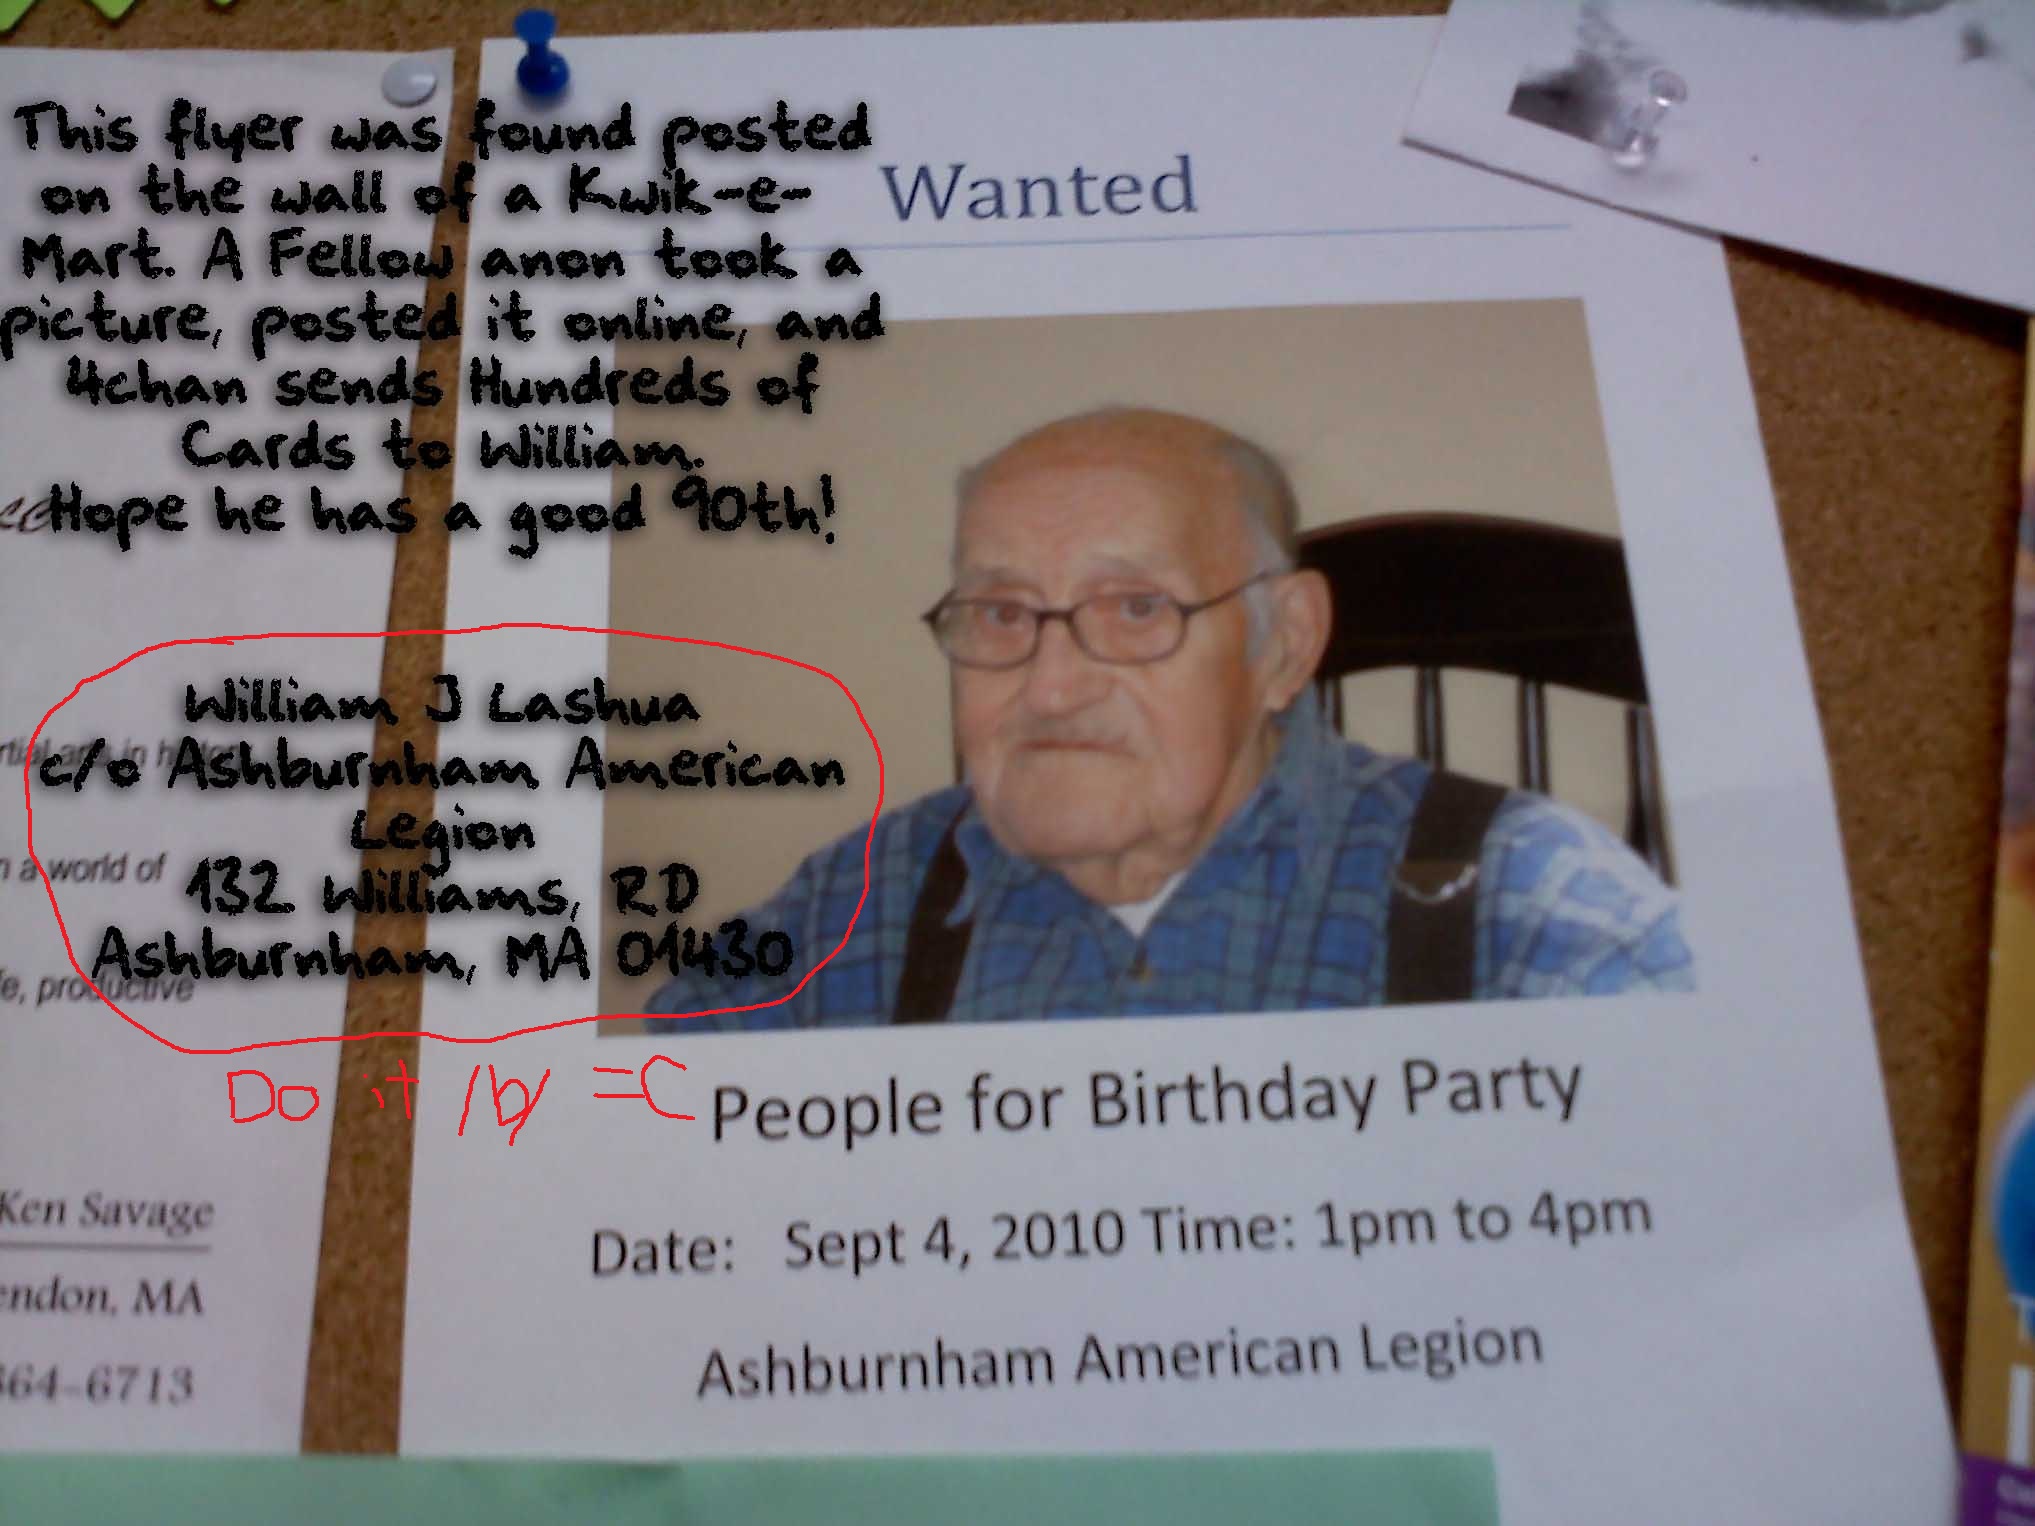 This flyer was found posted
on the wall of a Kwik-e-
Mart. A Fellow anon took a
picture, posted it online, and
4chan sends Hundreds of
Cards to William.
Hope he has a good 90th!
William J Lashua
c/o Ashburnham American
Legion
132 Williams, RD
Ashburnham, MA 01430
Do it /b/ =C
Wanted
People for Birthday Party
Date: Sept 4, 2010 Time: 1pm to 4pm
Ashburnham American Legion
in a world of
productive
Ken Savage
endon, MA
364-6713